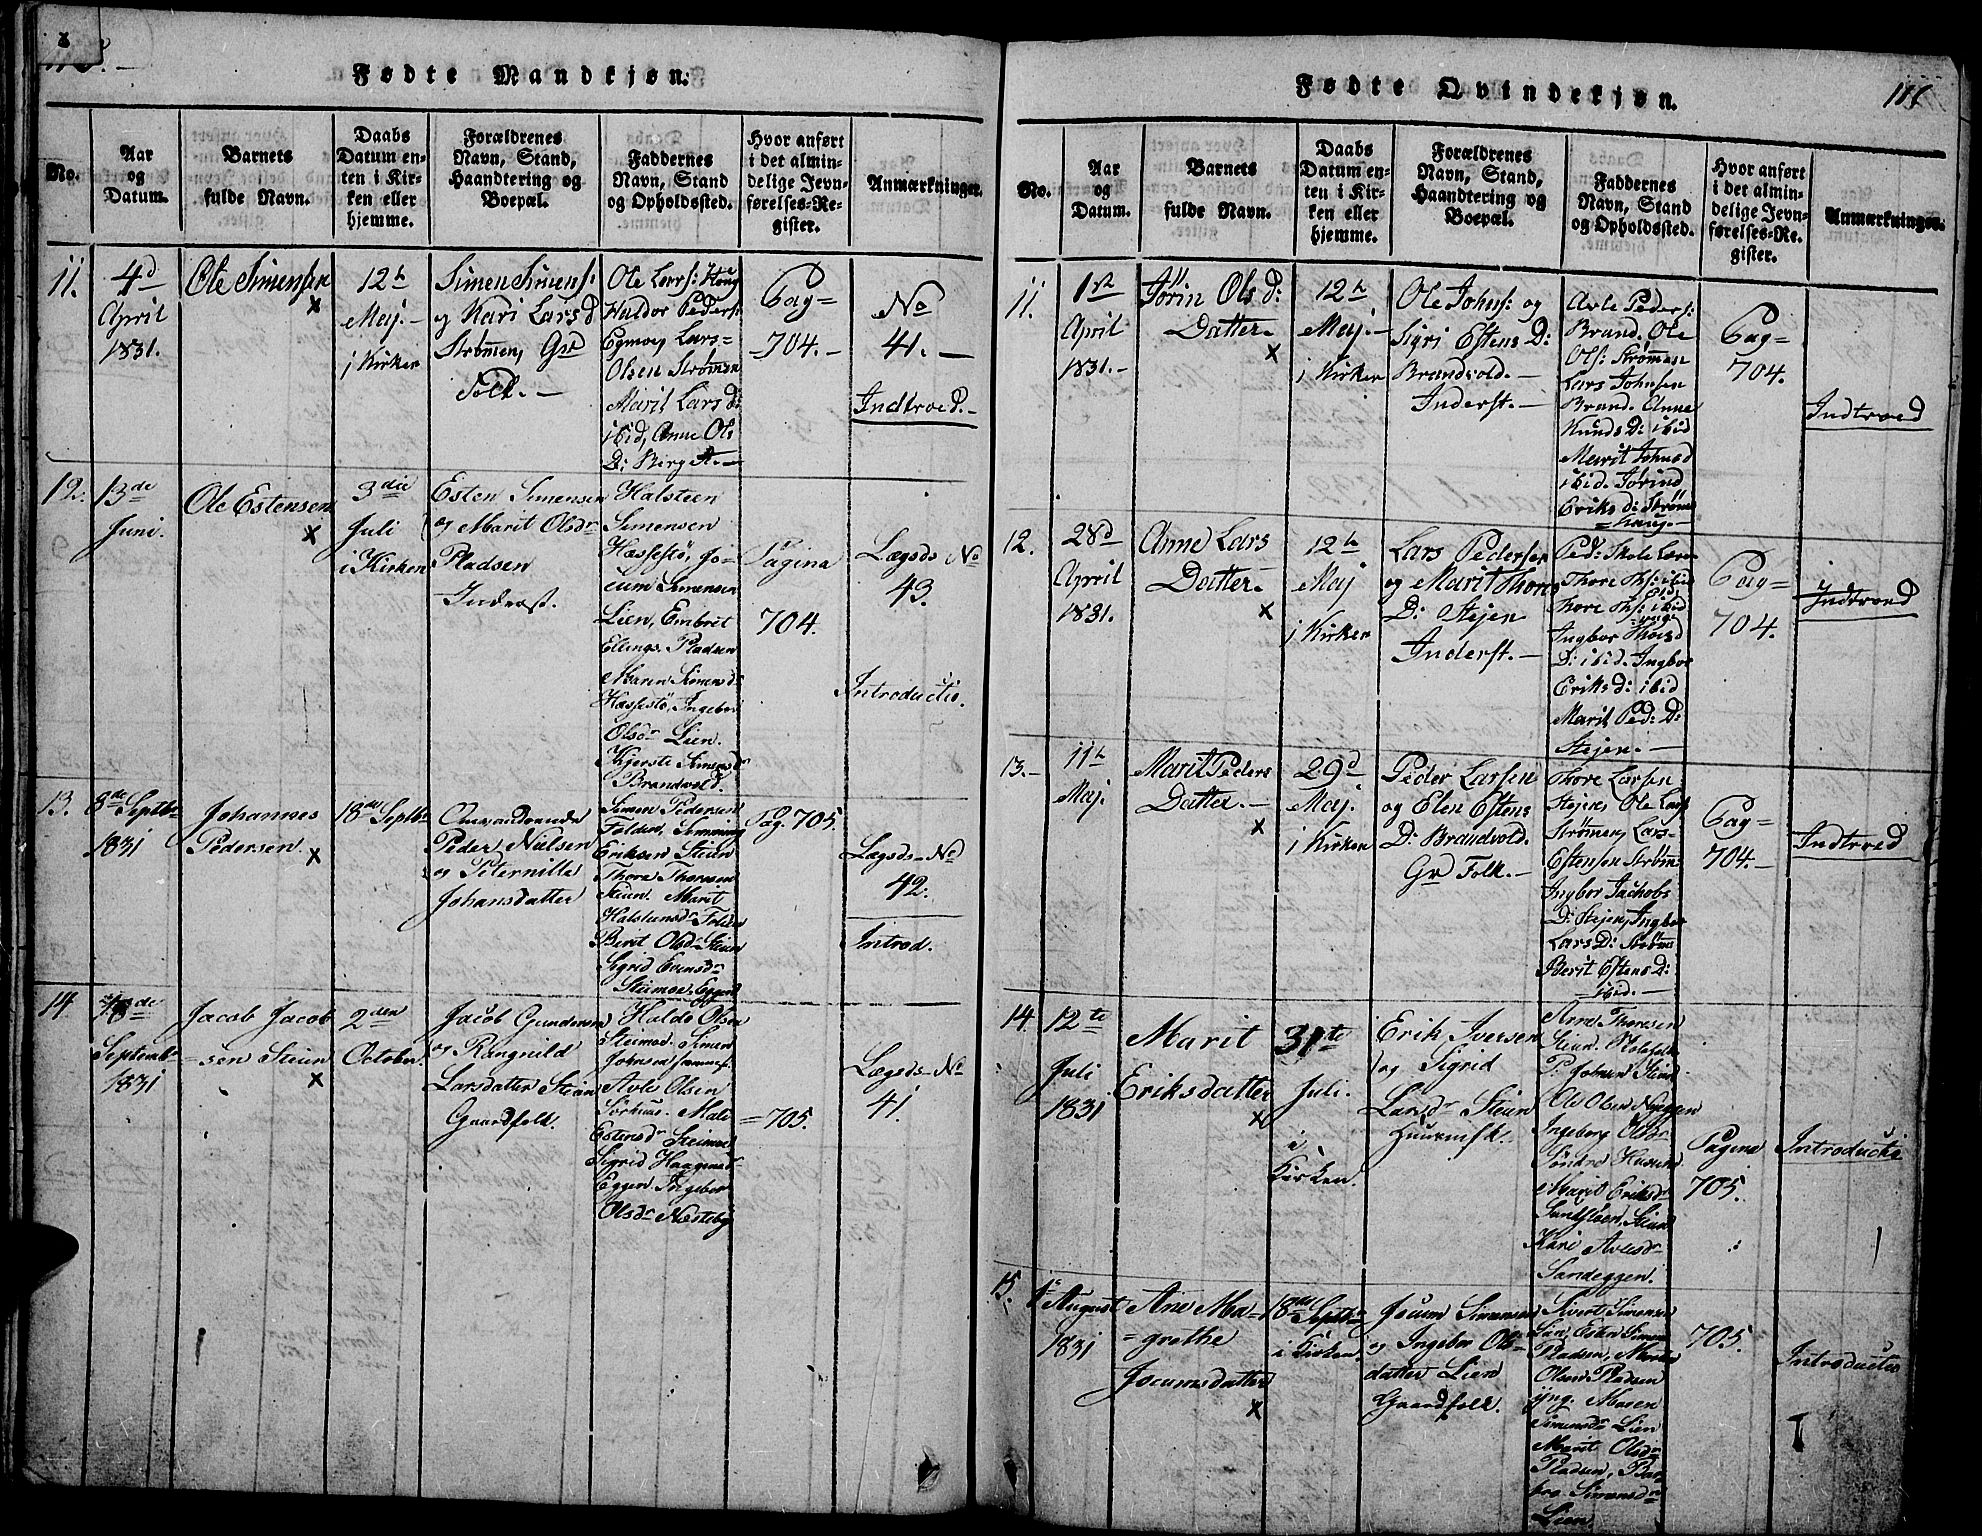 Fødte Mandkjøn.
No.
Aar
og
Datum.
Barnets
fulde Navn.
Daabs
Datum en-
ten i Kir-
ken eller
hjemme.
Forældrenes
Navn, Stand,
Haandtering og
Boepæl.
Faddernes
Navn, Stand
og Opholdssted.
Hvor anført
i det almin-
delige Jevn-
førelses-Re-
gister.
Anmærkninger.
11.
4d
April
1831.
Ole Simensen
x
12te
Maj. -
i Kirken
Simen Simens:
og Kari Larsd
Strømen, Grd
Folk. -
Ole Lars: Haug
Haldor Peders:
Egmoen, Lars-
Olsen Strømen
Marit Lars D:
ibid, Anne Ols
D: Birget. -
Pag=
704. -
No
41. -
Indtroed. -
12.
13de
Juni.
Ole Estensen
x
3die
Juli
i Kirken
Esten Simensen
og Marit Olsdr
Pladsen
Inderst.
Halsteen
Simensen
Hassestø, Jo-
cum Simensen
Lien, Embret
Ellings. Pladsen
Maren Simensd:
Hassestø, Ingebor
Olsdr Lien.
Kjersti Simensdr
Brandvold.
Pagina
704.
Lægds No
43.
Introductio.
13.
8de Septbr
1831
Johannes
Pedersen
x
18de Septbr
Omvandrende
Peder Nielsen
og Peternille
Johansdatter
Simen Pedersen
Folden, Semming
Eriksen Steien
Thore Thoresen
Steien. Marit
Halstensdr Folden
Berit Olsdr Steien
Sigrid Evensdr
Steimoe, Eggen
Pag. 705.
Lægds-No
42.
Introd.
14
Septembr
1831
Jacob Jacob
=sen Steien
x
2den
October.
Jacob Gundersen
og Rangnild
Larsdatter Steien
Gaardfolk.
Haldo Olsen
Steimoe. Simen
Johnsen sammest.
Avle Olsen
Sørhuus. Mali
Estensdr Steimoe
Sigrid Haagensdr
Eggen. Ingebor
Olsdr Næsteby
=705.
Lægds-No
41
Fødte Qvindekjøn.
No.
Aar
og
Datum.
Barnets
fulde Navn.
Daabs
Datum en-
ten i Kir-
ken eller
hjemme.
Forældrenes
Navn, Stand,
Haandtering og
Boepæl.
Faddernes
Navn, Stand
og Opholdssted.
Hvor anført
i det almin-
delige Jevn-
førelses-Re-
gister.
Anmærkninger.
11.
1ste
April
1831. -
Jörin Ols D:
Datter. -
x
12te
Maj. -
i Kirken
Ole Johns: og
Sigri Estens D:
Brandvold. -
Inderst. -
Avle Peders:
Brand. Ole
Ols: Strømen
Lars Johnsen
Brand. Anne
Knuds D: ibid
Marit Johnsd
ibid. Jørind
Eriks D: Strøms
=haug. -
Pag=
704.
Indtroed
12.
28d
April
1831.
Anne Lars
Datter -
x
12te
Maj
i Kirken
Lars Pedersen
og Marit Thores
D: Stejen
Inderst. -
Ped: Skole Lærer
Thore Ths: ibid
Thore Ths: ibid
Ingbor Thorsd
D: ibid. Ingbor
Eriks D: ibid
Marit Ped: D:
Stejen. -
Pag=
704.
Indtroed
13. -
11te
Maj.
Marit Peders
Datter. -
x
29d
Maj.
i Kirken
Peder Larsen
og Elen Estens
D: Brandvold.
Grd Folk. -
Thore Larsen
Stejen, Ole Lars
Strømen, Lars-
Estensen Strøm:
Ingbor Jachobs
D: Stejen, Ingbor
Lars D: Strøms
Berit Estens D:
- ibid. -
Pag=
704. -
Indtroed
14.
12te
Juli
1831
Marit
Eriksdatter
x
31te
Juli.
i
Kirken.
Erik Iversen
og Sigrid
Larsdr Steien
Huusmfk.
Arne Thoresen
Steien
P. Johnsen Steien
Ole Olsen Nyeggen
Ingeborg Olsdr
Søndre Husum
Marit Eriksdr
Sandfloen, Steien
Kari Avlesdr
Sandeggen.
Pagina
705.
Introductio
15.
1ste August
1831
Ane Ma=
=grethe
Jocumsdatter
x
18de Septbr
i Kirken.
Jocum Simensen
og Ingebor Ols=
datter Lien
Gaardfolk.
Sivert Simensen
Lien, Esten Simens
Pladsen, Marte
Olsend. Pladsen
yng. Maren
Simensdr Lien
Marit Olsdr
Pladsen, Bar
bro Simensdr
Lien.
705.
Introductio